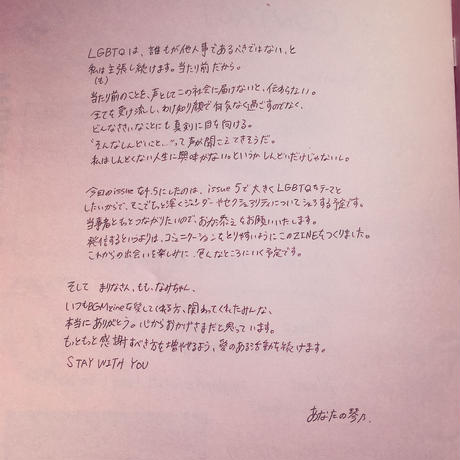 LGBTQは、誰もが他人事であるべきではない、と
私は主張し続けます。当たり前だから。
(も)
当たり前のことを、声としてこの社会に届けないと、伝わらない。
全てを受け流し、わけ知り顔で何気なく過ごすのでなく、
どんなささいなことにも真剣に目を向ける。
"そんなしんどいこと…"って声が聞こえてきそうだ。
私はしんどくない人生に興味がない。というかしんどいだけじゃないし。
今回のissueを4.5にしたのは、issue5で大きくLGBTQをテーマと
したいからで、そこでもっと深くジェンダーやセクシュアリティについて する予定です。
当事者ともっとつながりたいので、お力添えをお願いいたします。
発信するというよりは、コミュニケーションをとりやすいようにこのZINEをつくりました。
これからの出会いを楽しみに、色んなところにいく予定です。
そして まりなさん、もも、なみちゃん、
いつもBGMzineを愛してくれる方、関わってくれたみんな、
本当にありがとう。心からおかげさまだと思っています。
もっともっと感謝すべき方を増やせるよう、愛のある活動を続けます。
STAY WITH YOU
あなたの琴乃.